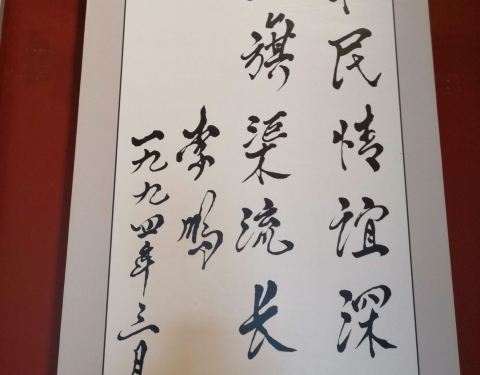 民情谊深
旗渠流长
李鹏
一九九四年三月